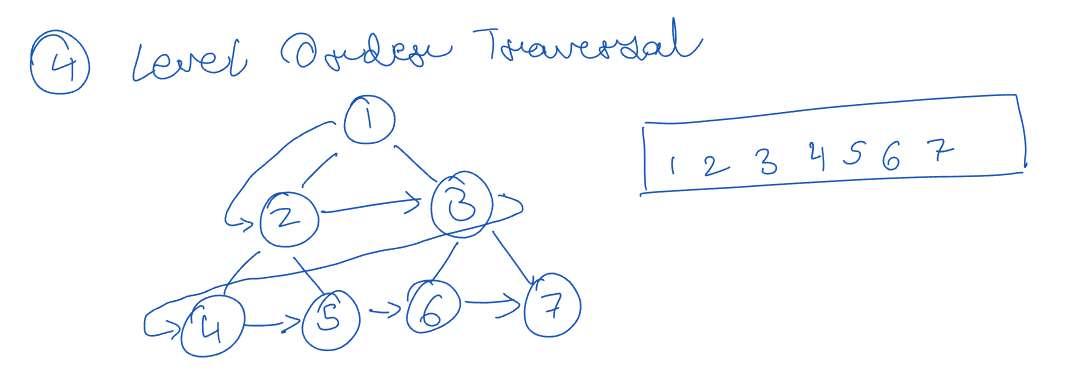 4 Level Order Traversal
1
1 2 3 4 5 6 7
2 3
4 5 6 7